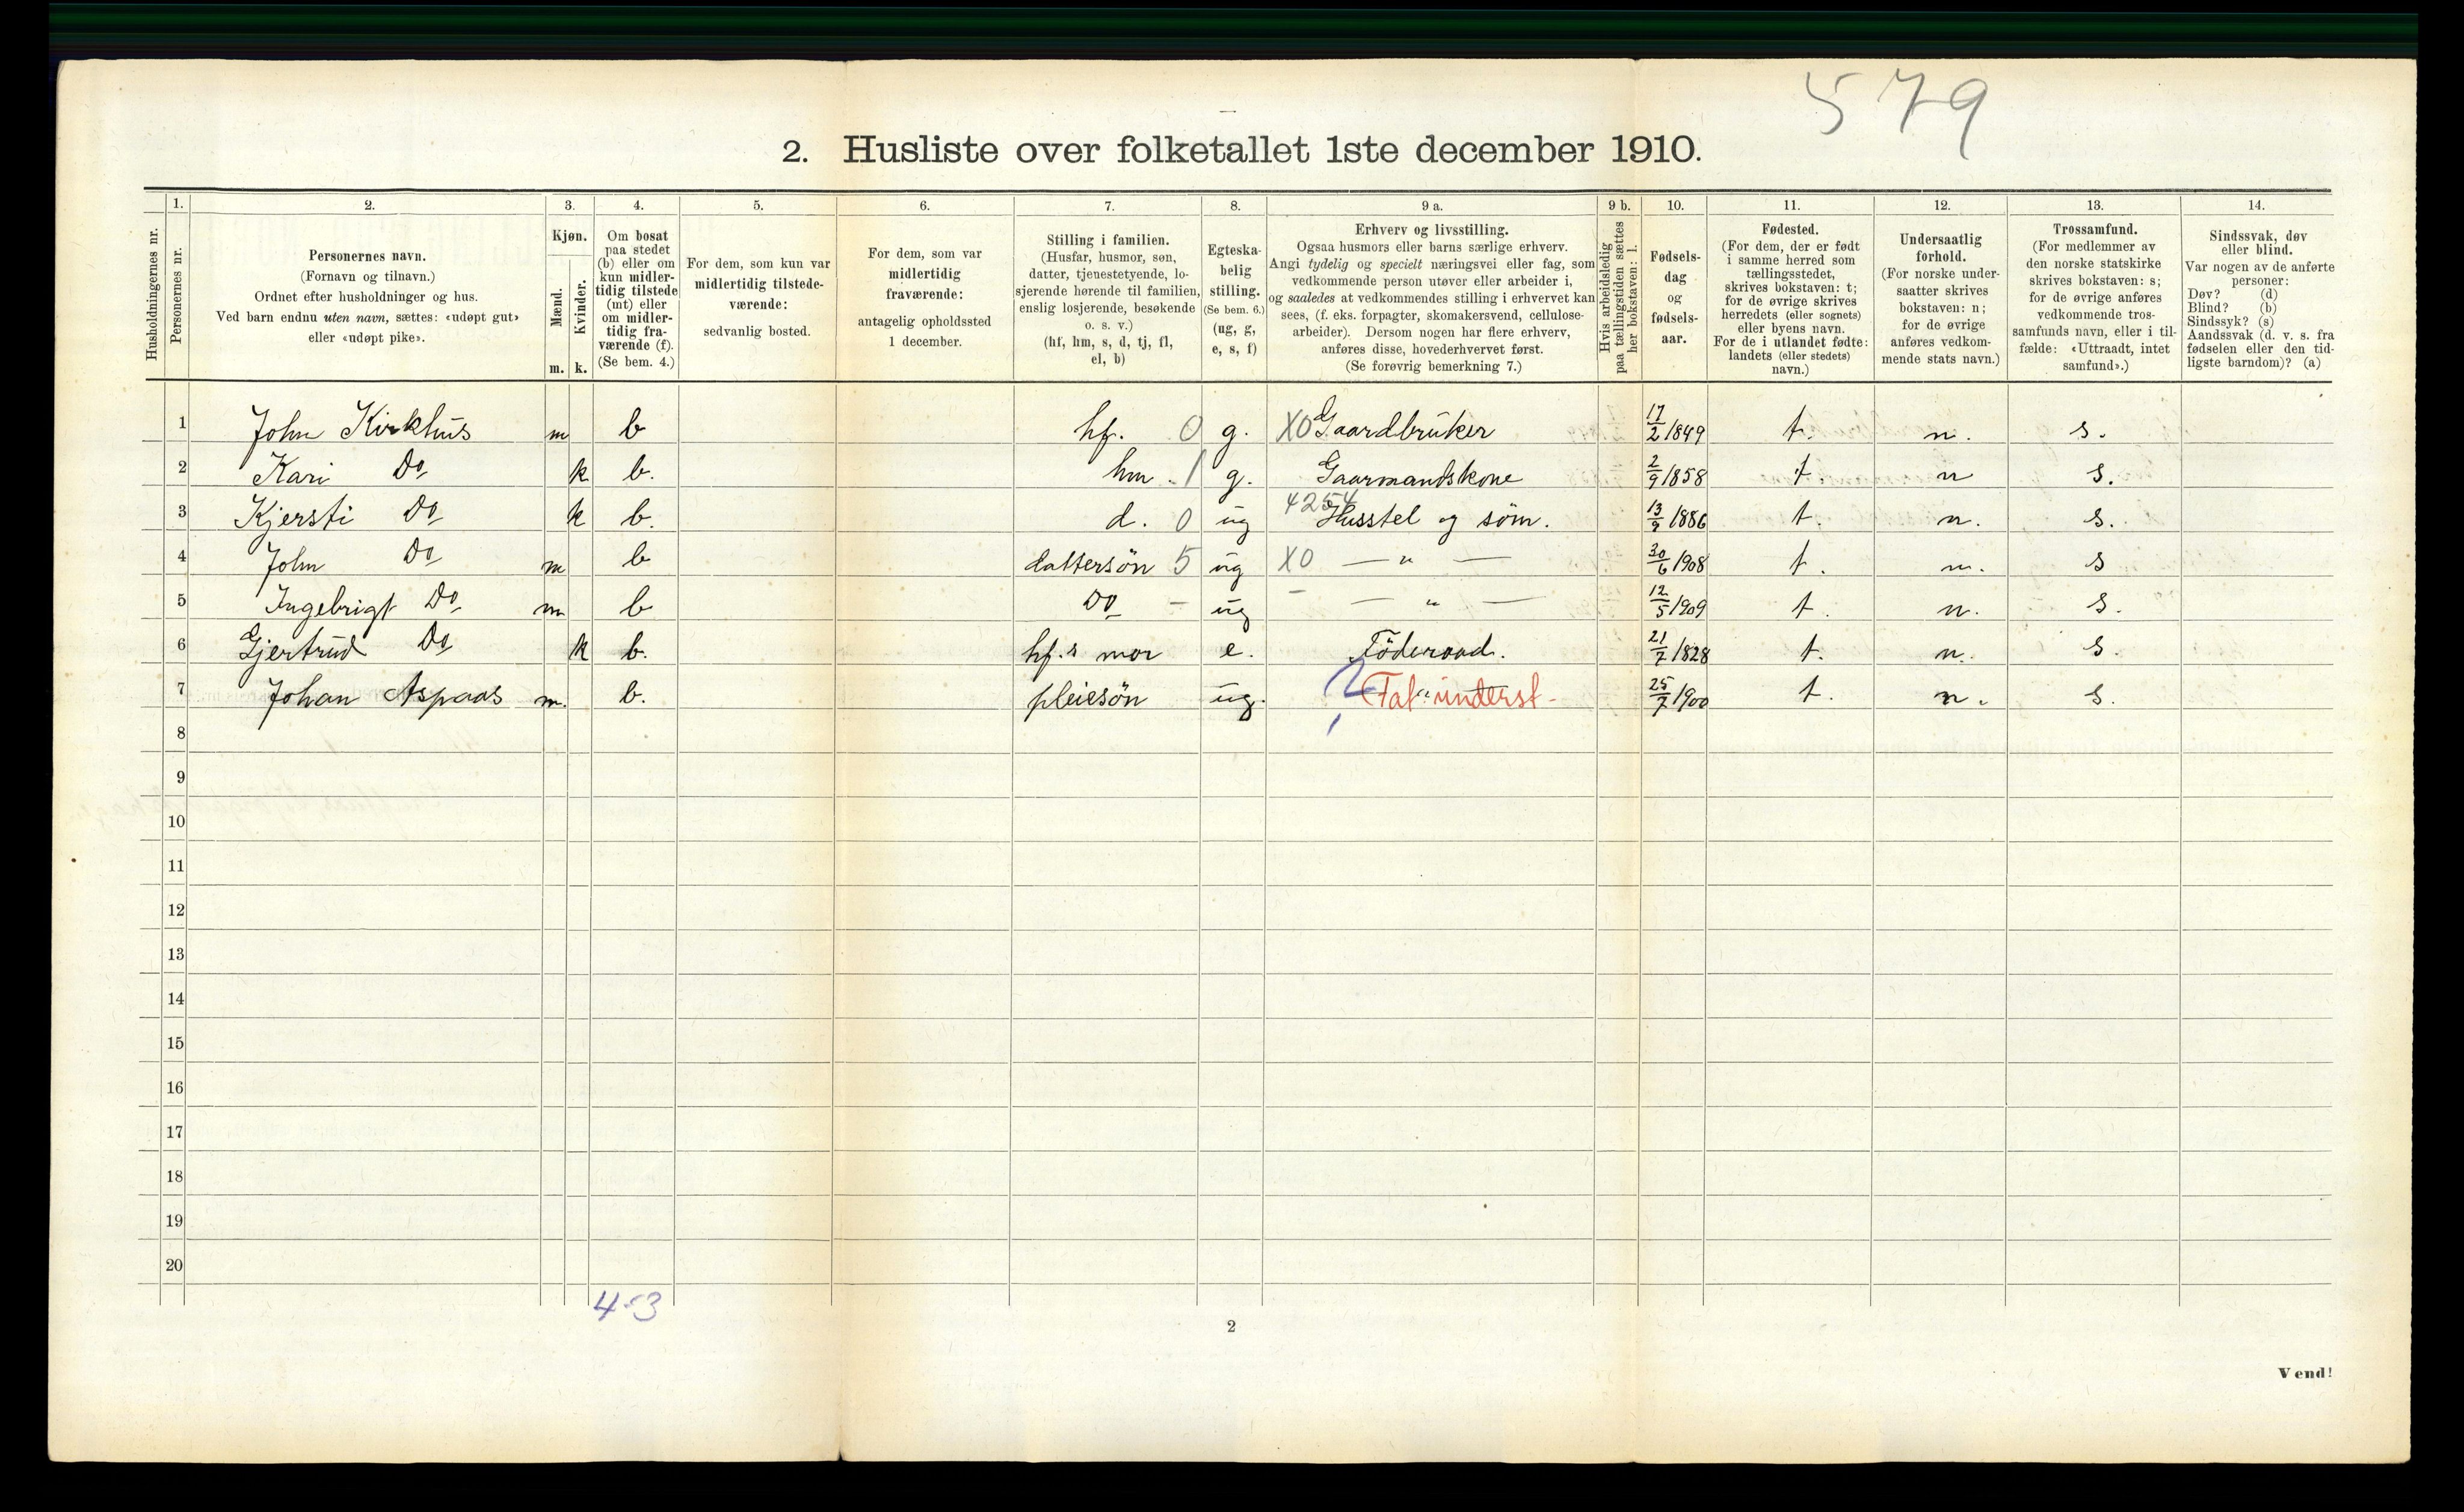 579
2. Husliste over folketallet 1ste december 1910.
Husholdningernes nr.
1. Personernes nr.
2. Personernes navn.
(Fornavn og tilnavn.)
Ordnet efter husholdninger og hus.
Ved barn endnu uten navn, sættes: «udøpt gut»
eller «udøpt pike».
3. Kjøn.
Mænd. Kvinder.
m. k.
4. Om bosat
paa stedet
(b) eller om
kun midler-
tidig tilstede
(mt) eller
om midler-
tidig fra-
værende (f).
(Se bem. 4.)
5. For dem, som kun var
midlertidig tilstede-
værende:
sedvanlig bosted.
6. For dem, som var
midlertidig
fraværende:
antagelig opholdssted
1 december.
7. Stilling i familien.
(Husfar, husmor, søn,
datter, tjenestetyende, lo-
sjerende hørende til familien,
enslig losjerende, besøkende
o. s. v.)
(hf, hm, s, d, tj, fl,
el, b)
8. Egteska-
belig
stilling.
(Se bem. 6.)
(ug, g,
e, s, f)
9 a. Erhverv og livsstilling.
Ogsaa husmors eller barns særlige erhverv.
Angi tydelig og specielt næringsvei eller fag, som
vedkommende person utøver eller arbeider i,
og saaledes at vedkommendes stilling i erhvervet kan
sees, (f. eks. forpagter, skomakersvend, cellulose-
arbeider). Dersom nogen har flere erhverv,
anføres disse, hovederhvervet først.
(Se forøvrig bemerkning 7.)
9 b. Hvis arbeidsledig
paa tællingstiden sættes
her bokstaven: l.
10. Fødsels-
dag
og
fødsels-
aar.
11. Fødested.
(For dem, der er født
i samme herred som
tællingsstedet,
skrives bokstaven: t;
for de øvrige skrives
herredets (eller sognets)
eller byens navn.
For de i utlandet fødte:
landets (eller stedets)
navn.)
12. Undersaatlig
forhold.
(For norske under-
saatter skrives
bokstaven: n;
for de øvrige
anføres vedkom-
mende stats navn.)
13. Trossamfund.
(For medlemmer av
den norske statskirke
skrives bokstaven: s;
for de øvrige anføres
vedkommende tros-
samfunds navn, eller i til-
fælde: «Uttraadt, intet
samfund».)
14. Sindssvak, døv
eller blind.
Var nogen av de anførte
personer:
Døv? (d)
Blind? (b)
Sindssyk? (s)
Aandssvak (d. v. s. fra
fødselen eller den tid-
ligste barndom)? (a)
1 John Kirkhus m b hf. 0 g. X0 Gaardbruker 17/2 1849 t. n. s.
2 Kari Do k b. hm. 1 g. Gaarmandskone 2/9 1858 t. n s.
3 Kjersti Do k b. d. 0 ug 4254 Husstel og söm. 13/9 1886 t. n. s.
4 John Do m b dattersön 5 ug X0 — " — 30/6 1908 t. n. s
5 Ingebrigt Do m b Do - ug - — " — 12/5 1909 t. n. s.
6 Gjertrud Do k b. hf.s mor e. Föderaad. 21/7 1828 t. n. s.
7 Johan Aspaas m. b. pleiesön ug. ? Fat. underst- 25/7 1900 t. n. s.
8
9
10
11
12
13
14
15
16
17
18
19
20
4-3
2
Vend!